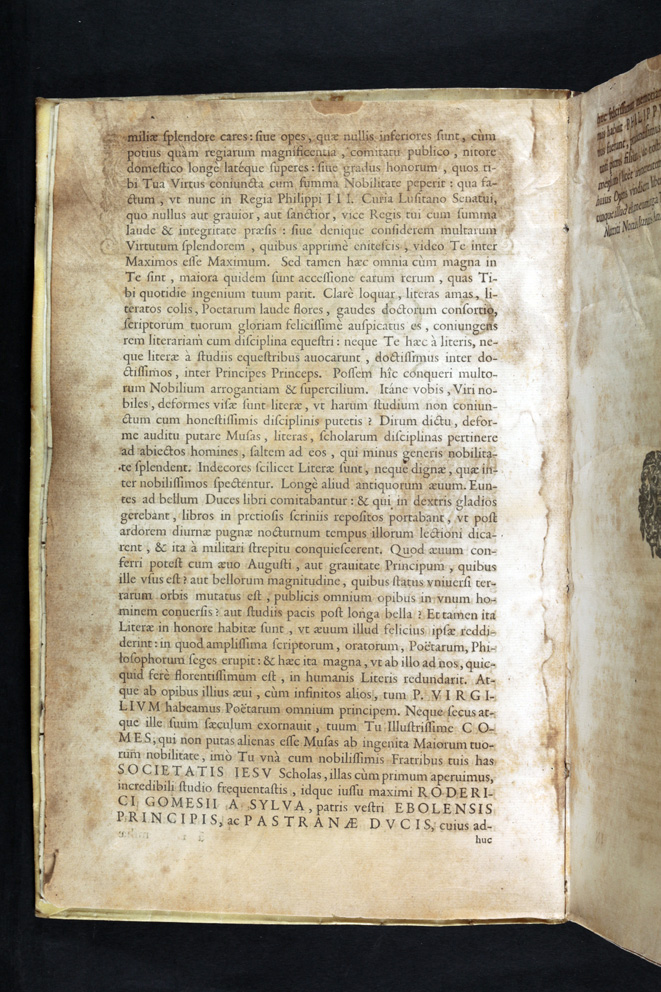 miliæ splendore cares: siue opes, quæ nullis inferiores sunt, cùm
potius quam regiarum magnificentia, comitatu publico, nitore
domestico longè latéque superes: siue gradus honorum, quos ti-
bi Tua Virtus coniuncta cum summa Nobilitate peperit: qua fa-
ctum, vt nunc in Regia Philippi III. Curia Lusitano Senatui,
quo nullus aut grauior, aut sanctior, vice Regis tui cum summa
laude & integritate præsis: siue denique considerem multarum
Virtutum splendorem, quibus apprimè enitescis, video Te inter
Maximos esse Maximum. Sed tamen hæc omnia cùm magna in
Te sint, maiora quidem sunt accessione earum rerum, quas Ti-
bi quotidie ingenium tuum parit. Clarè loquar, literas amas, li-
teratos colis, Poetarum laude flores, gaudes doctorum consortio,
scriptorum tuorum gloriam felicissimè auspicatus es, coniungens
rem literariam cum disciplina equestri: neque Te hæc à literis, ne-
que literæ à studiis equestribus auocarunt, doctissimus inter do-
ctissimos, inter Principes Princeps. Possem hîc conqueri multo-
rum Nobilium arrogantiam & supercilium. Itáne vobis, Viri no-
biles, deformes visæ sunt literæ, vt harum studium non coniun-
ctum cum honestissimis disciplinis putetis? Dirum dictu, defor-
me auditu putare Musas, literas, scholarum disciplinas pertinere
ad abiectos homines, saltem ad eos, qui minus generis nobilita-
te splendent. Indecores scilicet Literæ sunt, neque dignæ, quæ in-
ter nobilissimos spectentur. Longè aliud antiquorum æuum. Eun-
tes ad bellum Duces libri comitabantur: & qui in dextris gladios
gerebant, libros in pretiosis scriniis repositos portabant, vt post
ardorem diurnæ pugnæ nocturnum tempus illorum lectioni dica-
rent, & ita à militari strepitu conquiescerent. Quod æuum con-
ferri potest cum æuo Augusti, aut grauitate Principum, quibus
ille vsus est? aut bellorum magnitudine, quibus status vniuersi ter-
rarum orbis mutatus est, publicis omnium opibus in vnum ho-
minem conuersis? aut studiis pacis post longa bella? Et tamen ita
Literæ in honore habitæ sunt, vt æuum illud felicius ipsæ reddi-
derint: in quod amplissima scriptorum, oratorum, Poëtarum, Phi-
losophorum seges erupit: & hæc ita magna, vt ab illo ad nos, quic-
quid ferè florentissimum est, in humanis Literis redundarit. At-
que ab opibus illius æui, cùm infinitos alios, tum P. VIRGI-
LIVM habeamus Poëtarum omnium principem. Neque secus at-
que ille suum sæculum exornauit, tuum Tu Illustrissime CO-
MES, qui non putas alienas esse Musas ab ingenita Maiorum tuo-
rum nobilitate, imò Tu vnà cum nobilissimis Fratribus tuis has
SOCIETATIS IESV Scholas, illas cùm primum aperuimus,
incredibili studio frequentastis, idque iussu maximi RODERI-
CI GOMESII A SYLVA, patris vestri EBOLENSIS
PRINCIPIS, ac PASTRANÆ DVCIS, cuius ad-
huc